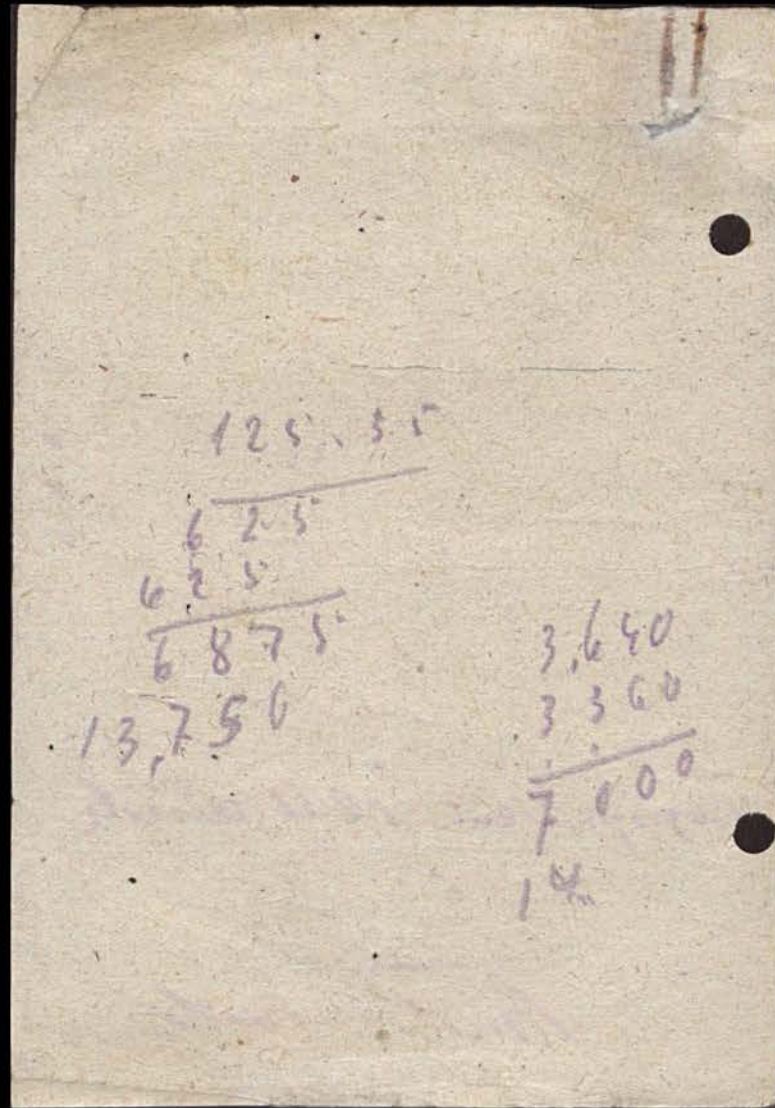 125.55
625
625
6875
13,750
3,640
3360
7000
1